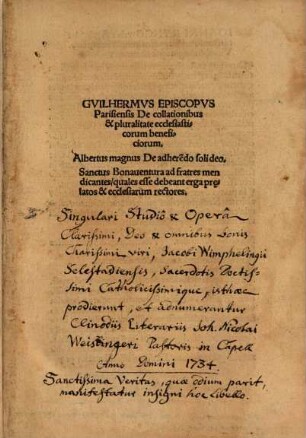 GVILHERMVS EPISCOPVS
Parisiensis De collationibus
& pluralitate ecclesiasti-
corum benefi-
ciorum.
Albertus magnus De adherẽdo soli deo.
Sanctus Bonauentura ad fratres men
dicantes/quales esse debeant erga prę
latos & ecclesiarum rectores.
Singulari Studiô & Operâ
Clarissimi, Deo & omnibus bonis
Clarissimi viri, Jacobi Wimphelingii
Selestadiensis, Sacerdotis Doctis-
simi Catholicissimique, isthæc
prodierunt, et adnumerantur
Clinodiis Literariis Joh. Nicolai
Weislingeri Pastoris in Capell
Anno Domini 1734.
Sanctissima Veritas, quæ odium parit,
manifestatur insigni hoc libello.